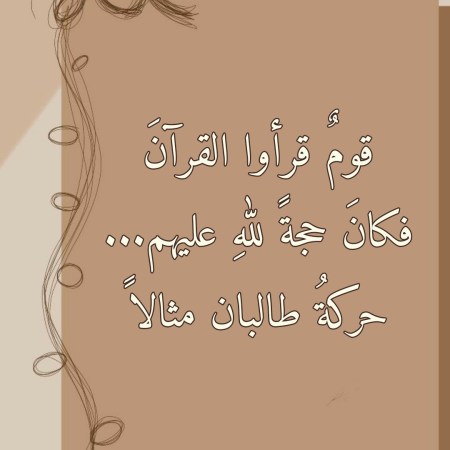 قومٌ قرأوا القرآنَ
فكانَ حجةً للهِ عليهم...
حركةُ طالبان مثالاً